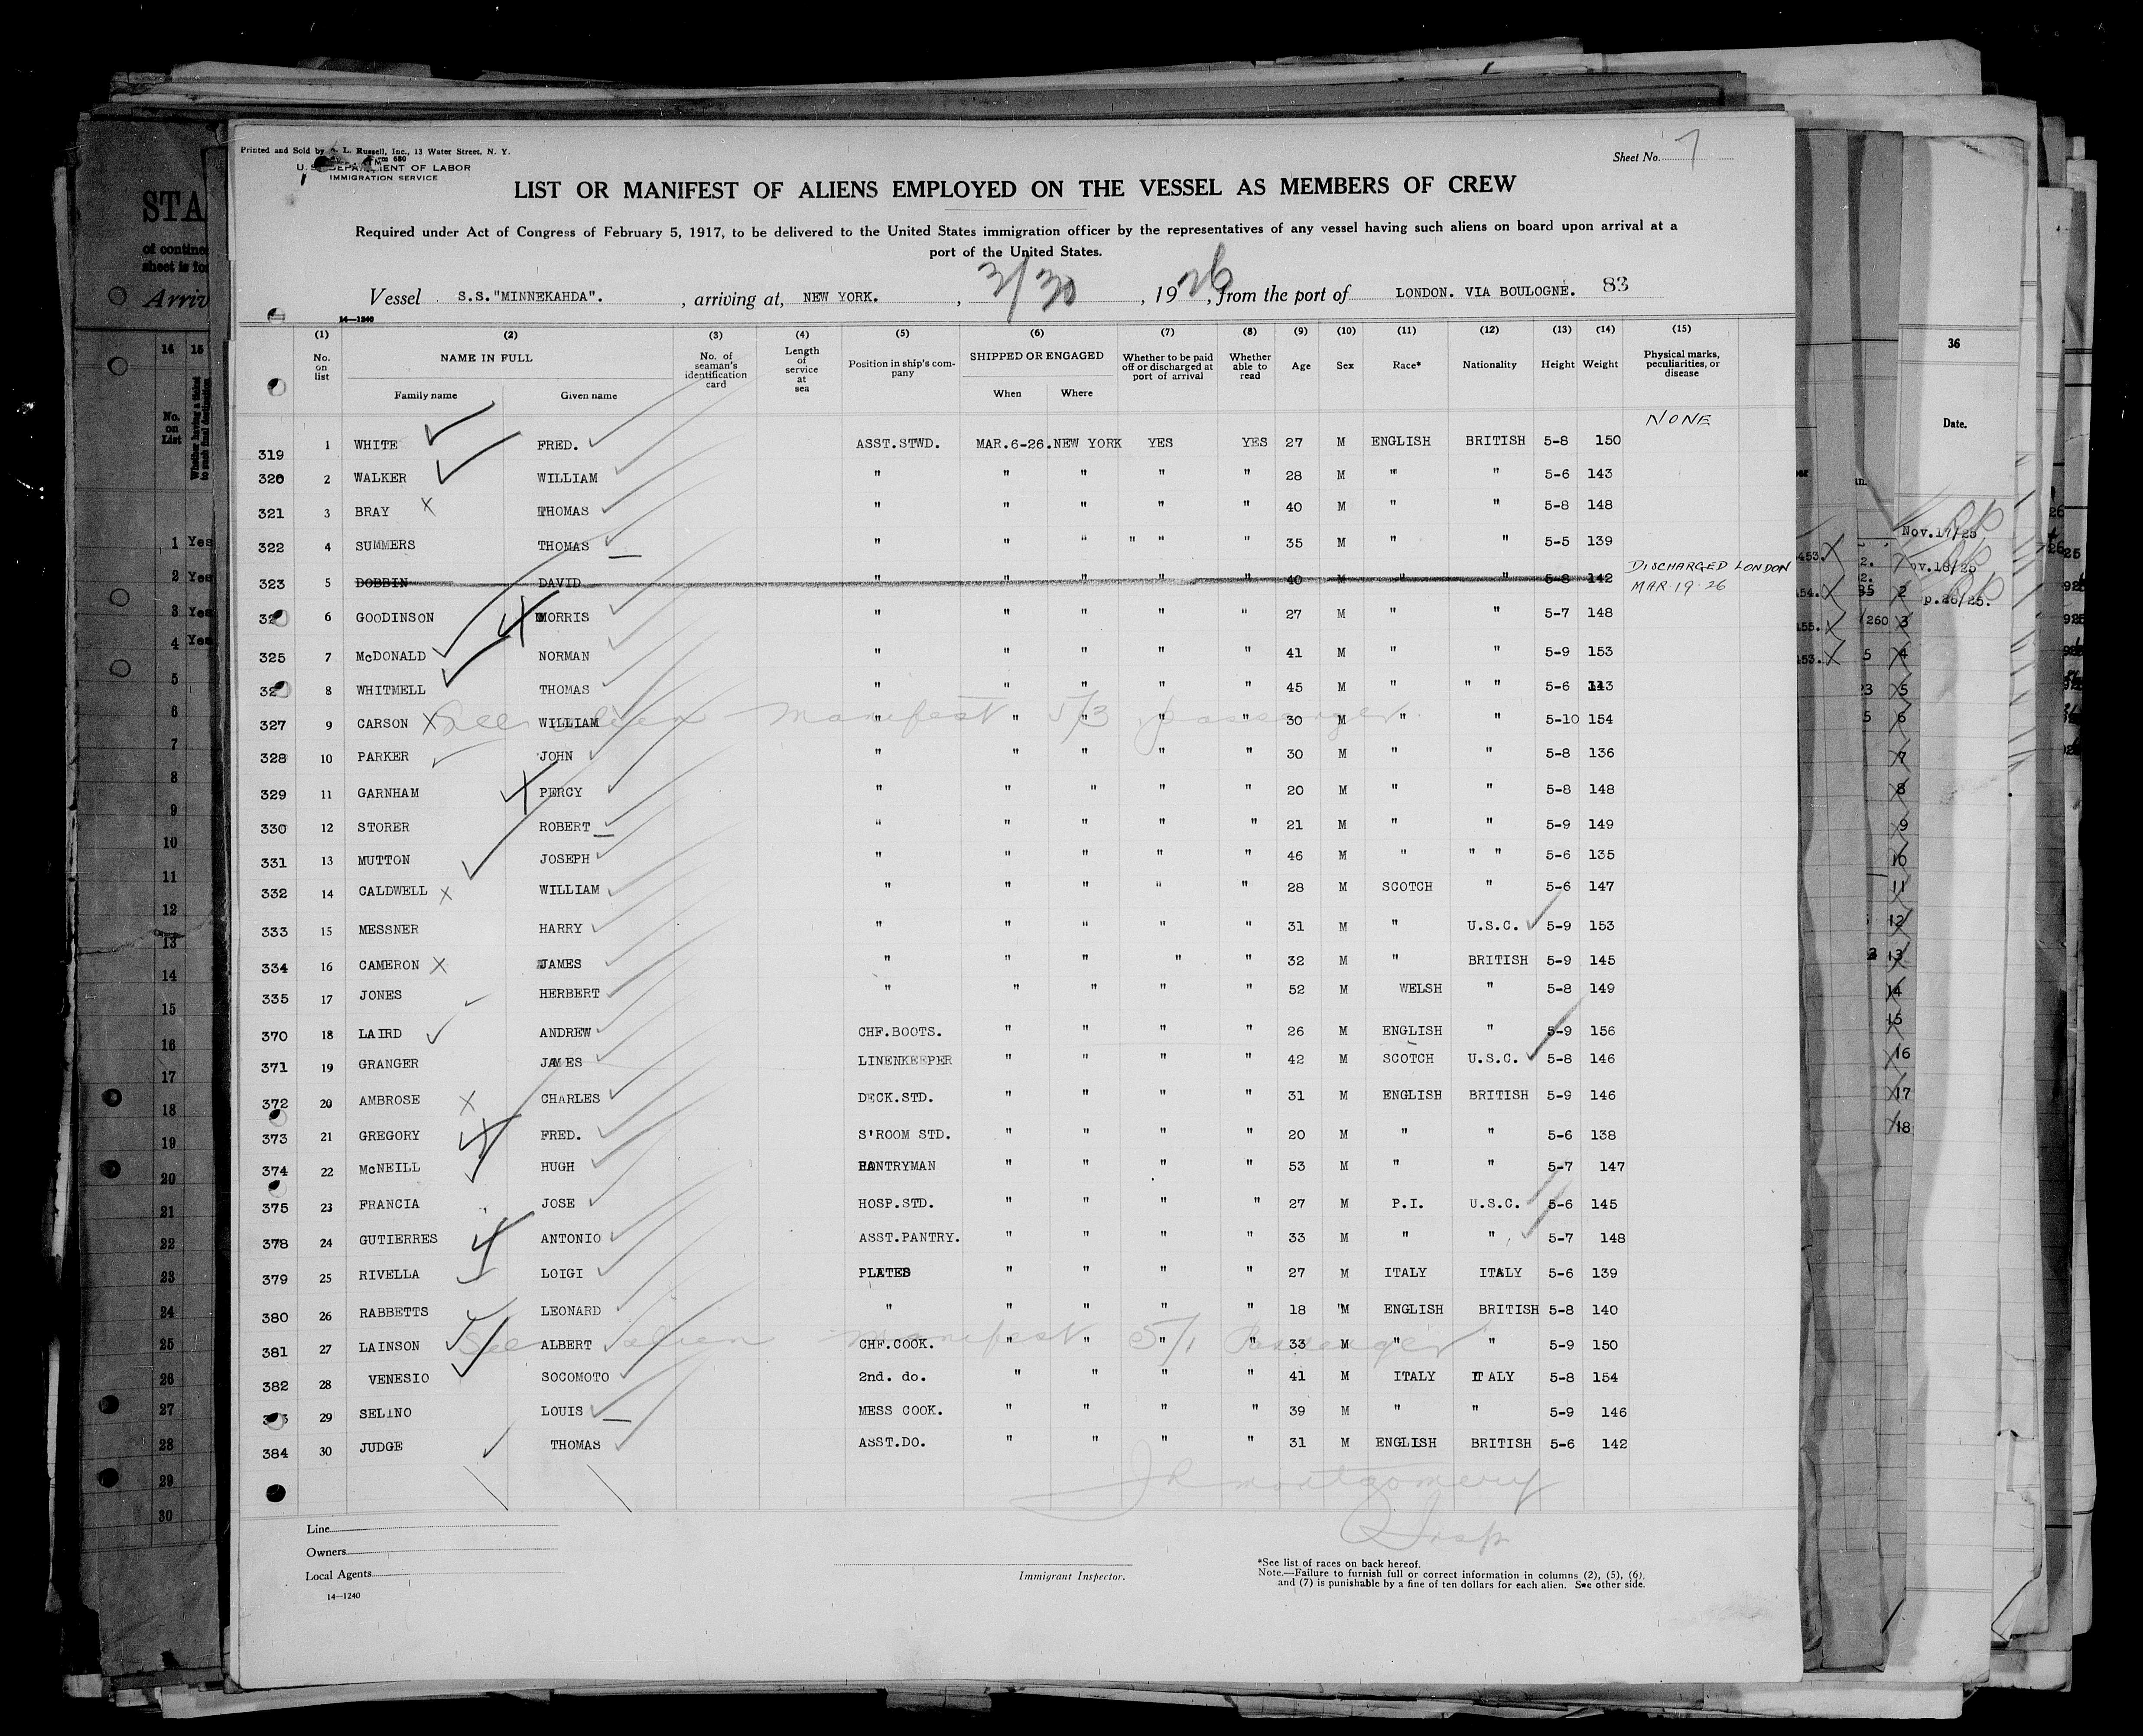 Printed and Sold by L. Russell, Inc., 13 Water Street, N. Y.
Sheet No. 7
IMMIGRATION SERVICE
LIST OR MANIFEST OF ALIENS EMPLOYED ON THE VESSEL AS MEMBERS OF CREW
Required under Act of Congress of February 5, 1917, to be delivered to the United States immigration officer by the representatives of any vessel having such aliens on board upon arrival at a
port of the United States.
Vessel S.S."MINNEKAHDA". , arriving at, NEW YORK. , 3/30 , 1926, from the port of LONDON. VIA BOULOGNE. 83
14—1240
(1) (2) (3) (4) (5) (6) (7) (8) (9) (10) (11) (12) (13) (14) (15)
No. on list NAME IN FULL Family name Given name No. of seaman's identification card Length of service at sea Position in ship's company SHIPPED OR ENGAGED When Where Whether to be paid off or discharged at port of arrival Whether able to read Age Sex Race* Nationality Height Weight Physical marks, peculiarities, or disease
NONE
319 1 WHITE FRED. ASST.STWD. MAR.6-26. NEW YORK YES YES 27 M ENGLISH BRITISH 5-8 150
320 2 WALKER WILLIAM " " " " " 28 M " " 5-6 143
321 3 BRAY THOMAS " " " " " 40 M " " 5-8 148
322 4 SUMMERS THOMAS " " " " " " 35 M " " 5-5 139
323 5 DOBBIN DAVID " " " " " 40 M " " 5-8 142 DISCHARGED LONDON MAR 19·26
6 GOODINSON MORRIS " " " " " 27 M " " 5-7 148
325 7 McDONALD NORMAN " " " " " 41 M " " 5-9 153
8 WHITMELL THOMAS " " " " " 45 M " " " 5-6
327 9 CARSON WILLIAM " " " " " 30 M " " 5-10 154
See alien manifest 5/3 passenger
328 10 PARKER JOHN " " " " " 30 M " " 5-8 136
329 11 GARNHAM PERCY " " " " " 20 M " " 5-8 148
330 12 STORER ROBERT " " " " " 21 M " " 5-9 149
331 13 MUTTON JOSEPH " " " " " 46 M " " " 5-6 135
332 14 CALDWELL WILLIAM " " " " " 28 M SCOTCH " 5-6 147
333 15 MESSNER HARRY " " " " " 31 M " U.S.C. 5-9 153
334 16 CAMERON JAMES " " " " " 32 M " BRITISH 5-9 145
335 17 JONES HERBERT " " " " " 52 M WELSH " 5-8 149
370 18 LAIRD ANDREW CHF.BOOTS. " " " " 26 M ENGLISH " 5-9 156
371 19 GRANGER JAMES LINENKEEPER " " " " 42 M SCOTCH U.S.C. 5-8 146
372 20 AMBROSE CHARLES DECK.STD. " " " " 31 M ENGLISH BRITISH 5-9 146
373 21 GREGORY FRED. S'ROOM STD. " " " " 20 M " " 5-6 138
374 22 McNEILL HUGH PANTRYMAN " " " " 53 M " " 5-7 147
375 23 FRANCIA JOSE HOSP.STD. " " " " 27 M P.I. U.S.C. 5-6 145
378 24 GUTIERRES ANTONIO ASST.PANTRY. " " " " 33 M " " 5-7 148
379 25 RIVELLA LOIGI PLATES " " " " 27 M ITALY ITALY 5-6 139
380 26 RABBETTS LEONARD " " " " " 18 "M ENGLISH BRITISH 5-8 140
381 27 LAINSON ALBERT CHF.COOK. " " " " 33 M " " 5-9 150
See alien manifest 5/1 Passenger
382 28 VENESIO SOCOMOTO 2nd. do. " " " " 41 M ITALY ITALY 5-8 154
29 SELINO LOUIS MESS COOK. " " " " 39 M " " 5-9 146
384 30 JUDGE THOMAS ASST.DO. " " " " 31 M ENGLISH BRITISH 5-6 142
JR Montgomery
Insp
Line
Owners
Local Agents
14—1240
Immigrant Inspector.
*See list of races on back hereof.
Note.—Failure to furnish full or correct information in columns (2), (5), (6),
and (7) is punishable by a fine of ten dollars for each alien. See other side.
STA
of contine
sheet is for
Arriv
14 15
No. on List
Whether having a ticket to such final destination
1 Yes
2 Yes
3 Yes
4 Yes
5
6
7
8
9
10
11
12
13
14
15
16
17
18
19
20
21
22
23
24
25
26
27
28
29
30
36
Date.
Nov.17/25
2
3
4
5
6
7
8
9
10
11
12
13
14
15
16
17
18